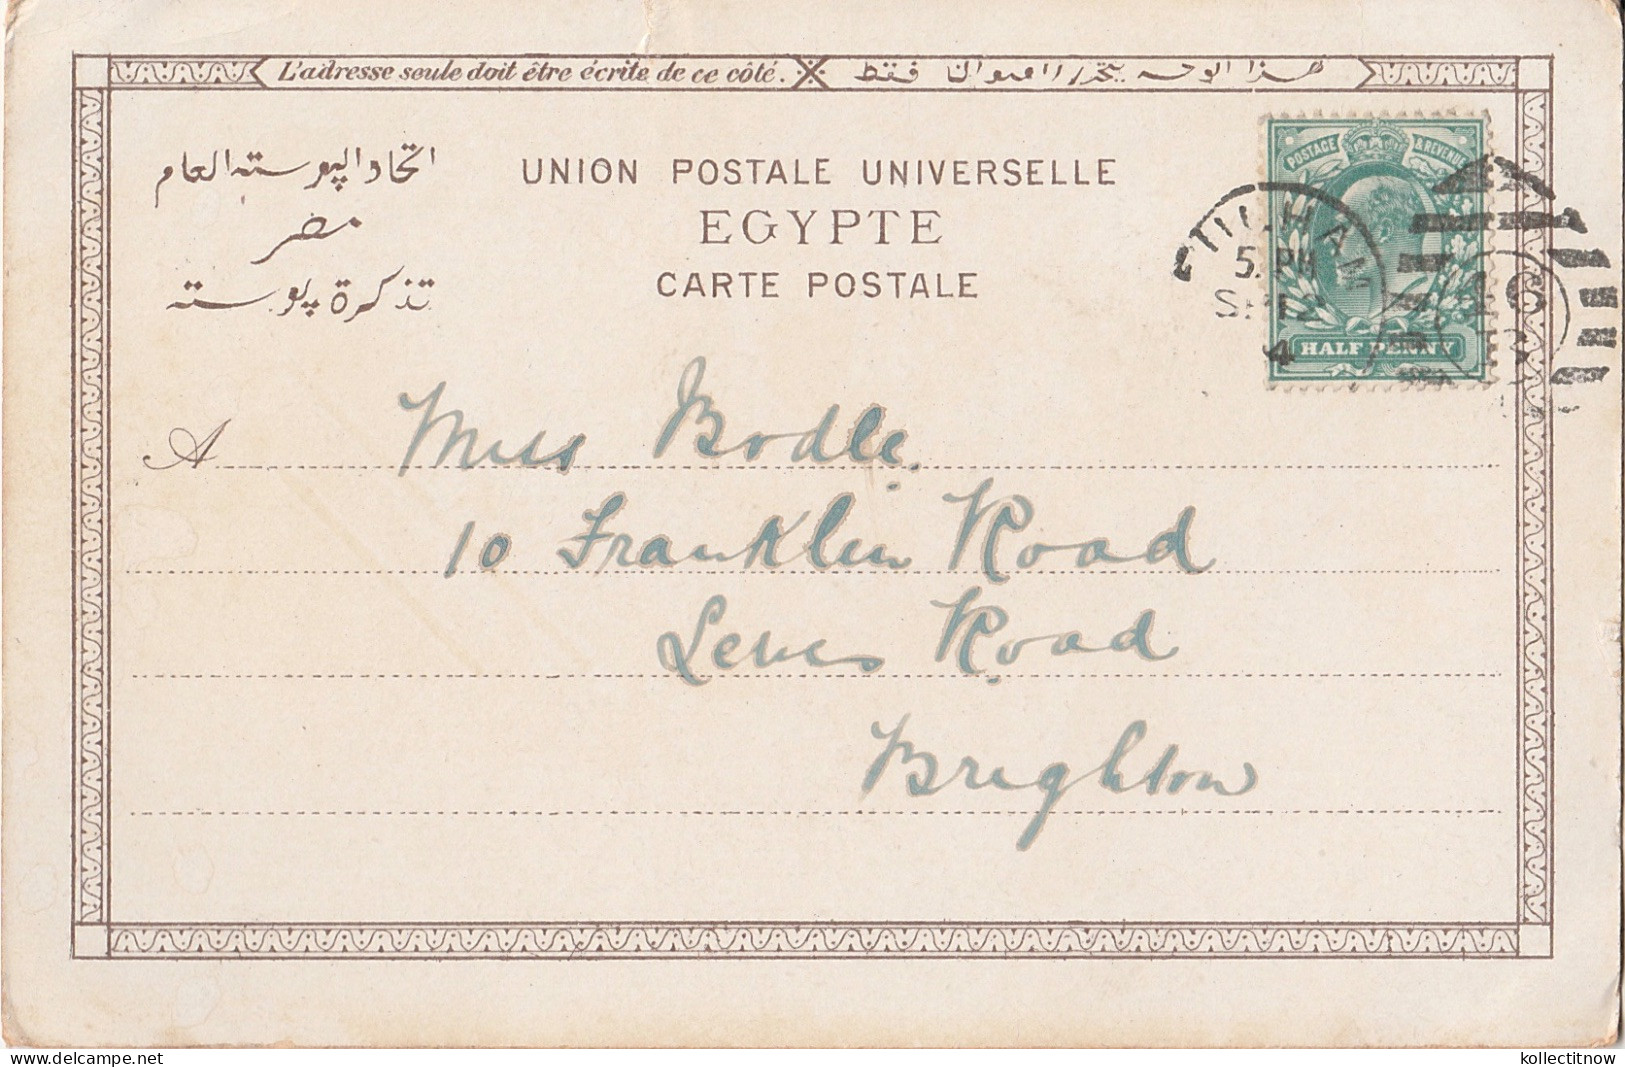 L'adresse seule doit être écrite de ce côté.
هذا الوجه يتحرر العنوان فقط
اتحاد البوسته العام
مصر
تذكرة بوسته
UNION POSTALE UNIVERSELLE
EGYPTE
CARTE POSTALE
POSTAGE & REVENUE
HALF PENNY
5. PM
SP 12
4
A Miss Bodle.
10 Franklin Road
Lewes Road
Brighton
kollectitnow